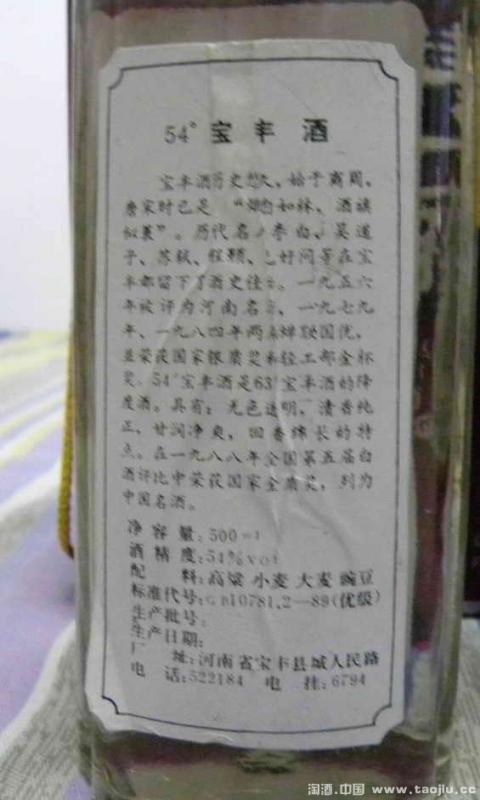 54°宝丰酒
宝丰酒历史悠久，始于商周，
唐宋时已是"如林，酒旗
似蓑"。历代名李白、吴道
子、苏轼、程颢、好问等在宝
丰都留下了酒史佳。一九五六
年被评为河南名，一九七九
年、一九八四年两蝉联国优，
并荣获国家银质奖和轻工部金杯
奖。54°宝丰酒是63°宝丰酒的降
度酒。具有：无色透明，清香纯
正，甘润净爽，回香绵长的特
点。在一九八八年全国第五届白
酒评比中荣获国家金质奖，列为
中国名酒。
净容量：500ml
酒精度：54%vol
配料：高粱 小麦 大麦 豌豆
标准代号：GB10781.2—89(优级)
生产批号：
生产日期：
厂址：河南省宝丰县城人民路
电话：522184 电挂：6794
淘酒.中国 www.taojiu.cc